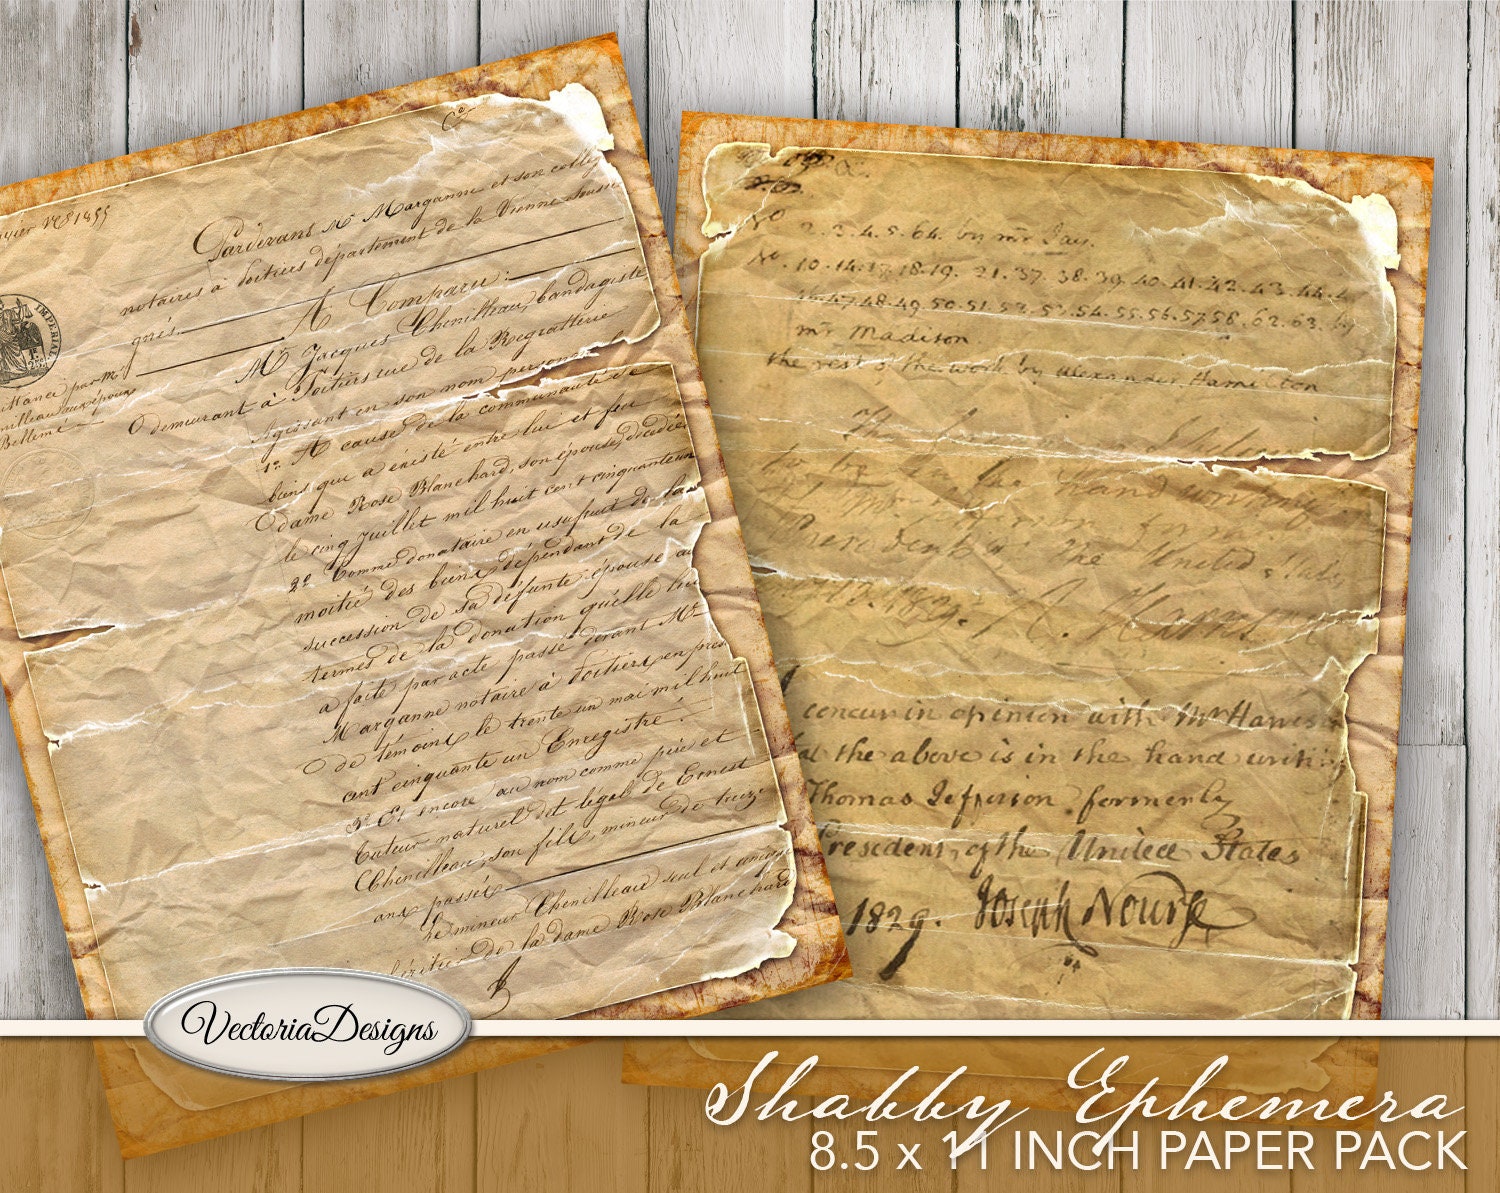 Ce
Pardevant Me Marganne et son collég
notaires à Poitiers département de la Vienne souss
gnés.
A Comparu :
Mr Jacques Chenilleau, bandagiste
demeurant à Poitiers rue de la Regratterie
Agissant en son nom personnel
1º. A cause de la communauté de
biens qui a éxisté entre lui et feu
dame Rose Blanchard, son épouse, décédée
le cinq Juillet mil huit cent cinquante un
2º Comme donataire en usufruit de la
moitié des biens dépendant de la
succession de sa défunte épouse au
termes de la donation qu'elle lui
a faite par acte passé devant Me
Marganne notaire à Poitiers en prés
de témoins le trente un mai mil huit
cent cinquante un Enregistré.
3º Et encore au nom comme père et
tuteur naturel et légal de Ernest
Chenilleau, son fils, mineur de treize
ans passés
le mineur Chenilleau seul et unique
héritier de la dame Rose Blanchard
IMPERIAL
Bellême
No 2. 3. 4. 5. 64. by mr Jay.
No. 10. 14. 17. 18. 19. 21. 37. 38. 39. 40. 41. 42. 43. 44. 4
46. 47. 48. 49. 50. 51. 52. 53. 54. 55. 56. 57. 58. 62. 63. by
mr Madison
the rest of the work by Alexander Hamilton
to be in the Hand writing
President of the United States
concur in opinion with Mr Harris
the above is in the hand writing
Thomas Jefferson formerly
President, of the United States
1829. Joseph Nourse
VectoriaDesigns
Shabby Ephemera
8.5 x 11 INCH PAPER PACK